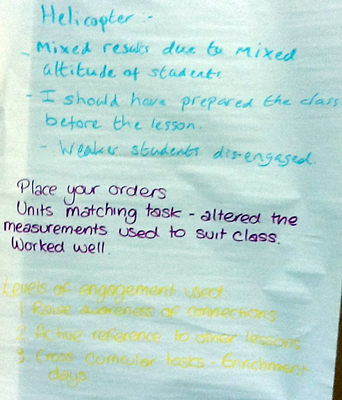 Helicopter :-
- Mixed results due to mixed
altitude of students
- I should have prepared the class
before the lesson.
- Weaker students disengaged.
Place your orders
Units matching task - altered the
measurements used to suit class.
Worked well.
Levels of engagement used
1 Raise awareness of connections
2 Active reference to other lessons
3 Cross curricular tasks - Enrichment
days